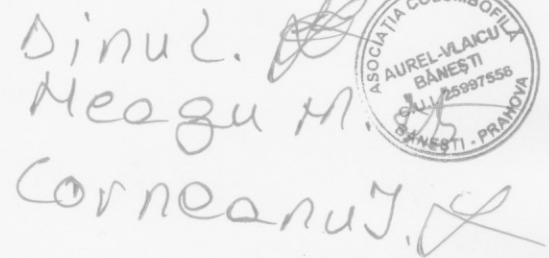 Dinu L.
Neagu M.
Corneanu I.
ASOCIAȚIA COLUMBOFILĂ
AUREL-VLAICU
BĂNEȘTI
C.U.I. 25997556
BĂNEȘTI - PRAHOVA